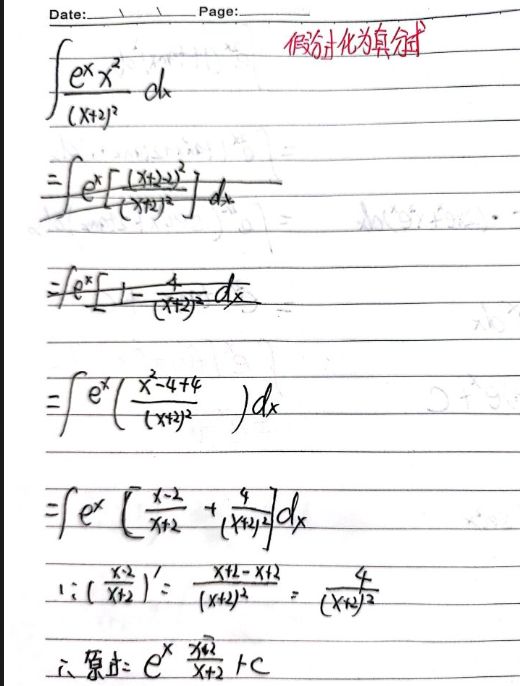 Date: Page:
假分式化为真分式
∫ e^x x^2/(x+2)^2 dx
=∫ e^x [(x+2-2)^2/(x+2)^2] dx
=∫ e^x [1 - 4/(x+2)^2 dx
=∫ e^x ( (x^2-4+4)/(x+2)^2 ) dx
=∫ e^x [ (x-2)/(x+2) + 4/(x+2)^2 ] dx
∵ ( (x-2)/(x+2) )' = (x+2-x+2)/(x+2)^2 = 4/(x+2)^2
∴ 原式= e^x (x-2)/(x+2) +C